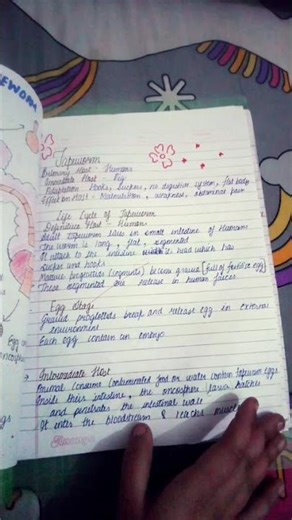 EWORM
Tapeworm
Primary Host - Humans
Intermediate Host - Pig
Adaptation Hooks, Suckers, no digestive system, flat body
Effect on Host - Malnutrition, weakness, abdominal pain
Life Cycle of Tapeworm
Definitive Host - Humans
Adult tapeworm lives in small intestine of Humans
The worm is long, flat, segmented
It attach to the intestine its head which has
sucker and hooks
Mature proglottids (segments) become gravid (full of fertilize egg)
These segmented are release in human faeces
Egg Stage
Gravid proglottids break and release egg in external
environment
Each egg contain an embryo
→ Intermediate Host
Animal consume contaminated food or water contain Tapeworm eggs
Inside their intestine, the oncosphere larva hatches
and penetrates the intestinal wall
It enter the bloodstream & reaches
Egg